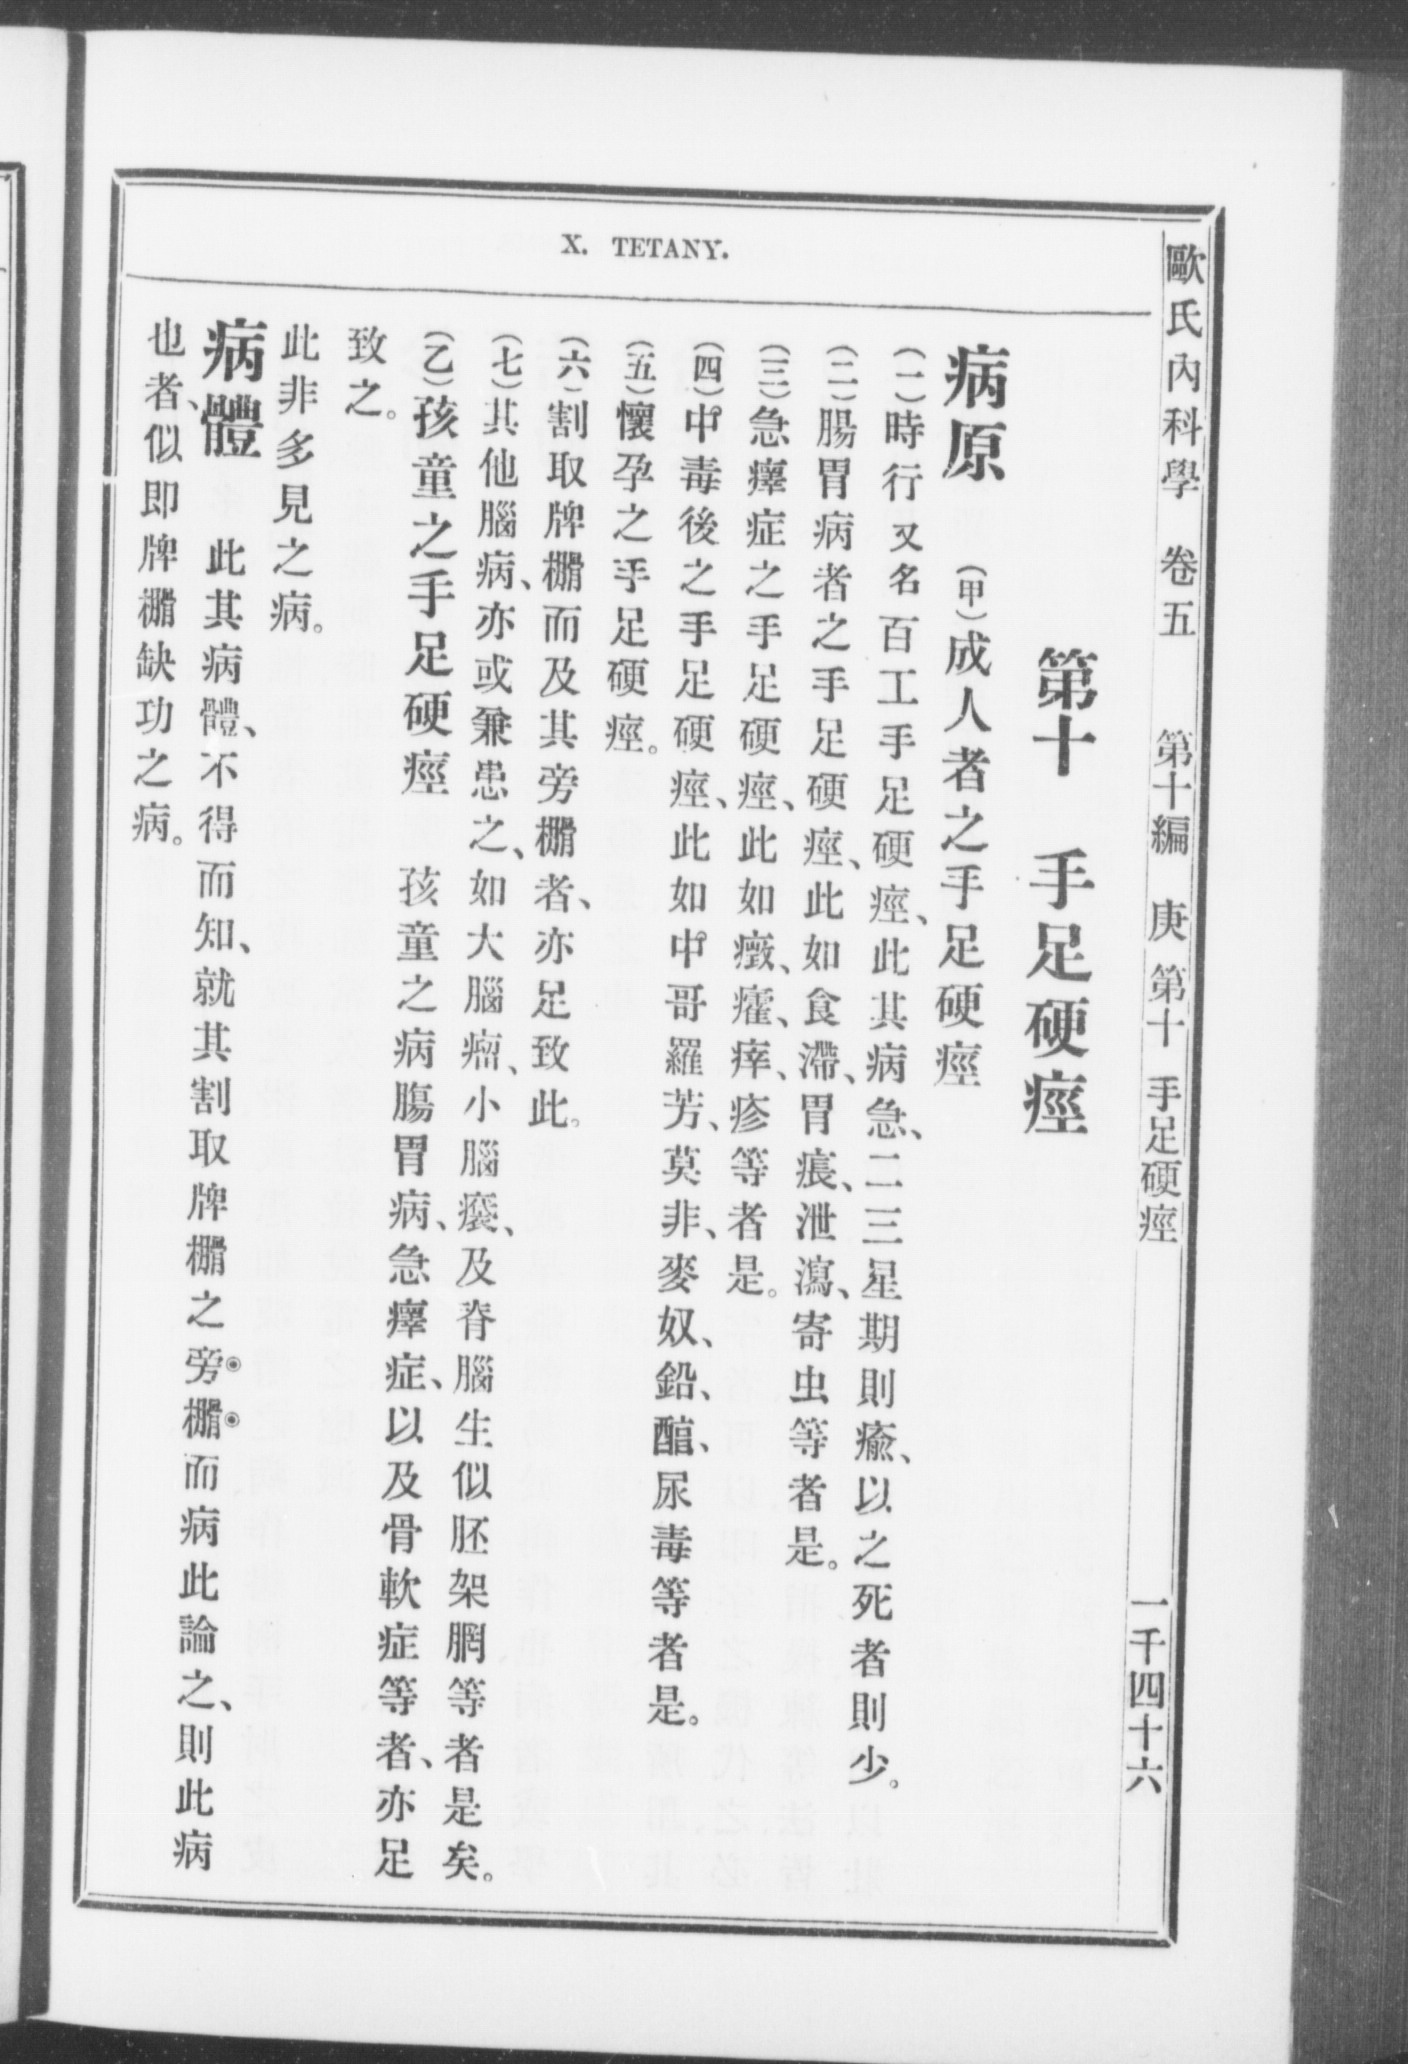 歐氏內科學　卷五　第十編　庚　第十　手足硬痙　一千四十六
X. TETANY.
第十　手足硬痙
病原　（甲）成人者之手足硬痙
（一）時行又名百工手足硬痙、此其病急、二三星期則瘉、以之死者則少。
（二）腸胃病者之手足硬痙、此如食滯、胃痮、泄瀉、寄虫等者是。
（三）急癉症之手足硬痙、此如癥、癨、痒、疹等者是。
（四）中毒後之手足硬痙、此如中哥羅芳、莫非、麥奴、鉛、醕、尿毒等者是。
（五）懷孕之手足硬痙。
（六）割取牌棴而及其旁棴者、亦足致此。
（七）其他腦病、亦或兼患之、如大腦瘤、小腦㿈、及脊腦生似胚架膶等者是矣。
（乙）孩童之手足硬痙　孩童之病腸胃病、急癉症、以及骨軟症等者、亦足
致之。
此非多見之病。
病體　此其病體、不得而知、就其割取牌棴之旁棴而病此論之、則此病
也者、似即牌棴缺功之病。